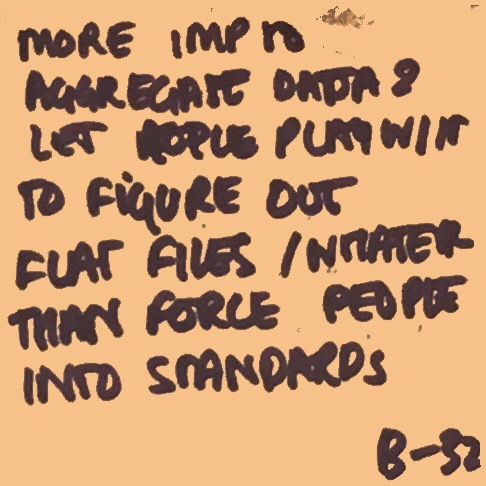 MORE IMP TO
AGGREGATE DATA &
LET PEOPLE PLAY W/IT
TO FIGURE OUT
FLAT FILES / RATHER
THAN FORCE PEOPLE
INTO STANDARDS
B-32